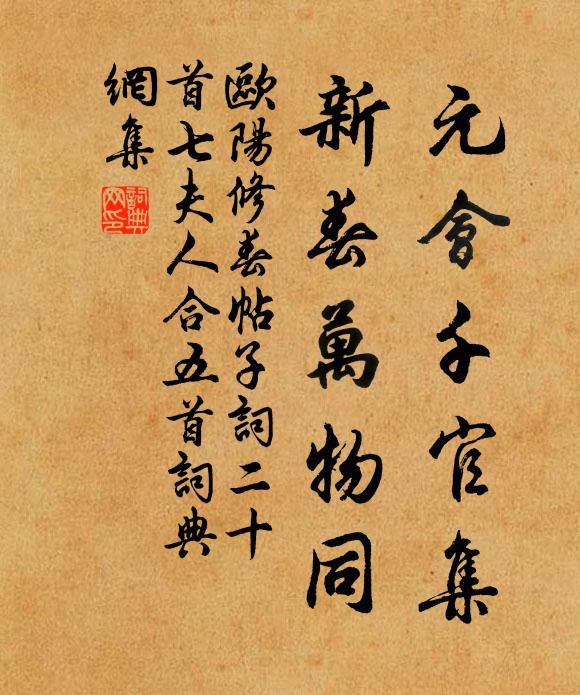 元會千官集
新春萬物同
歐陽修春帖子詞二十
首七夫人合五首詞典
網集
詞典網印